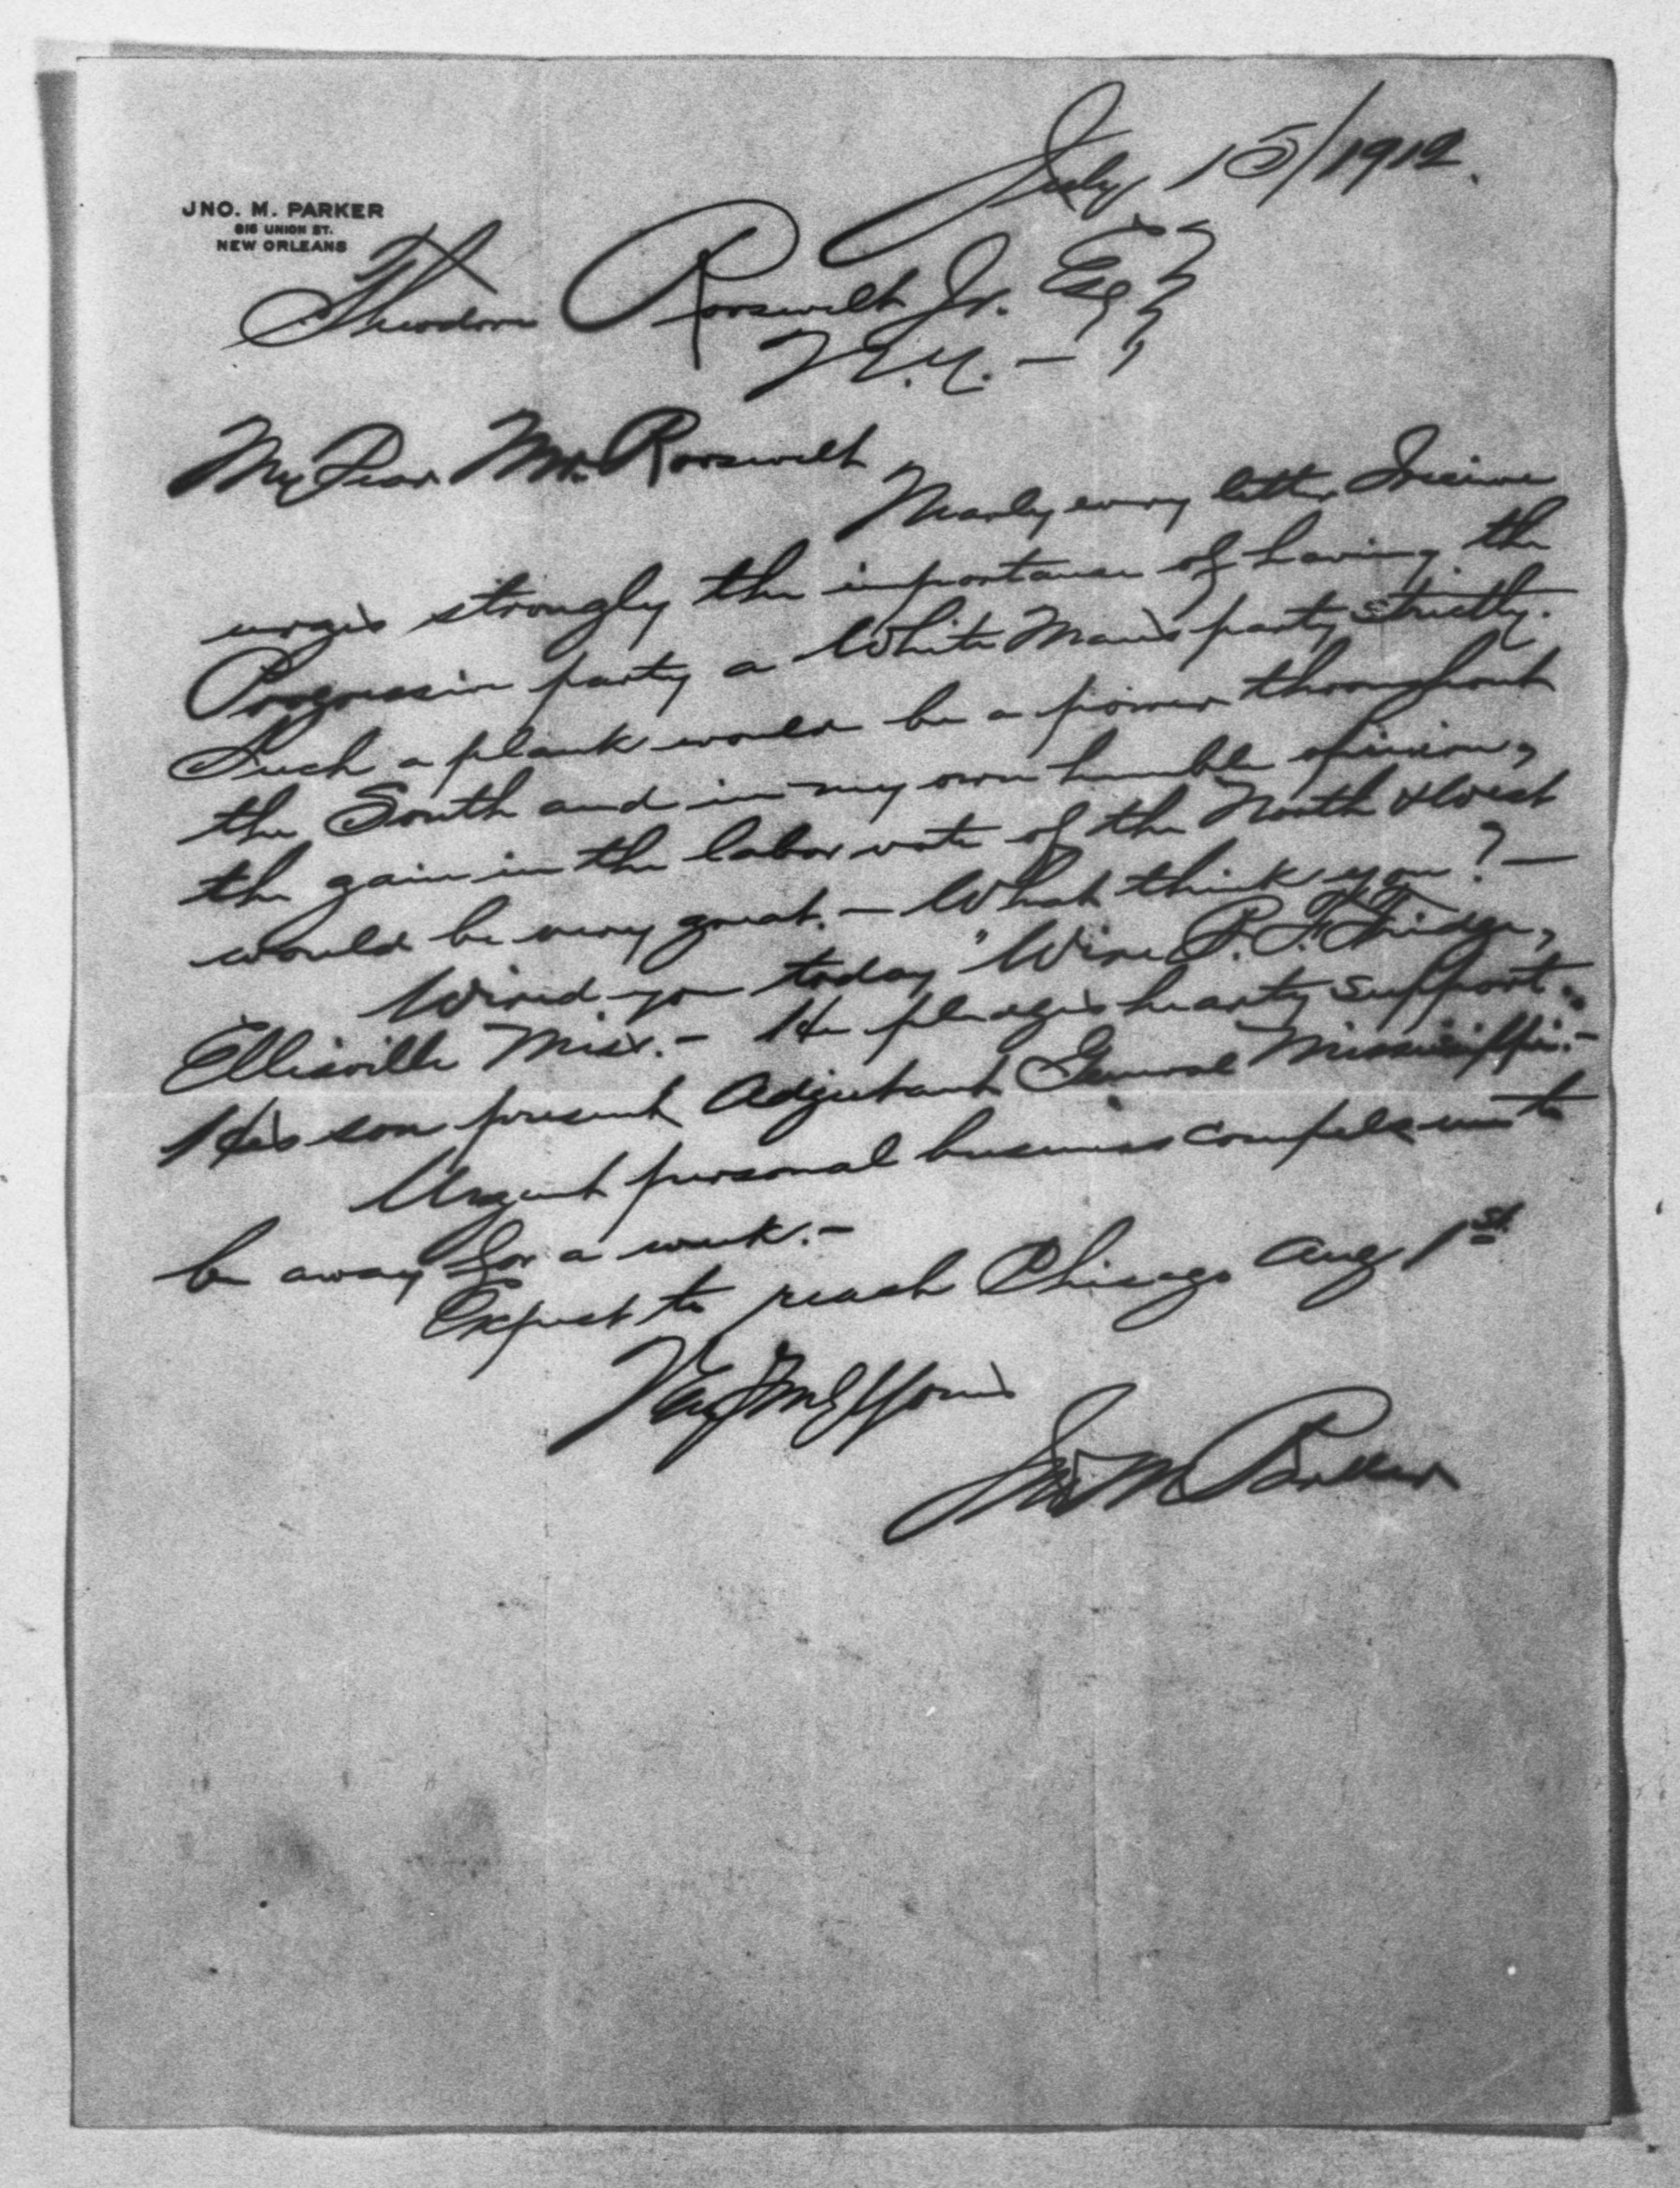 July 15/1912.
JNO. M. PARKER
816 UNION ST.
NEW ORLEANS
Theodore Roosevelt Jr. Esq
N.Y. —
My Dear Mr. Roosevelt
Nearly every letter I receive
urges strongly the importance of having the
Progressive party a White Man's party strictly.
Such a plank would be a power throughout
the South and in my own humble opinion,
the gain in the labor vote of the North & West
would be very great. — What think you? —
Wired you today "Wire P. F. Fridge,
Ellisville Miss. — He pledges hearty support.
His son present Adjutant General Mississippi. —
Urgent personal business compels me to
be away for a week. —
Expect to reach Chicago Aug 1st.
Very Truly Yours
Jno M Parker